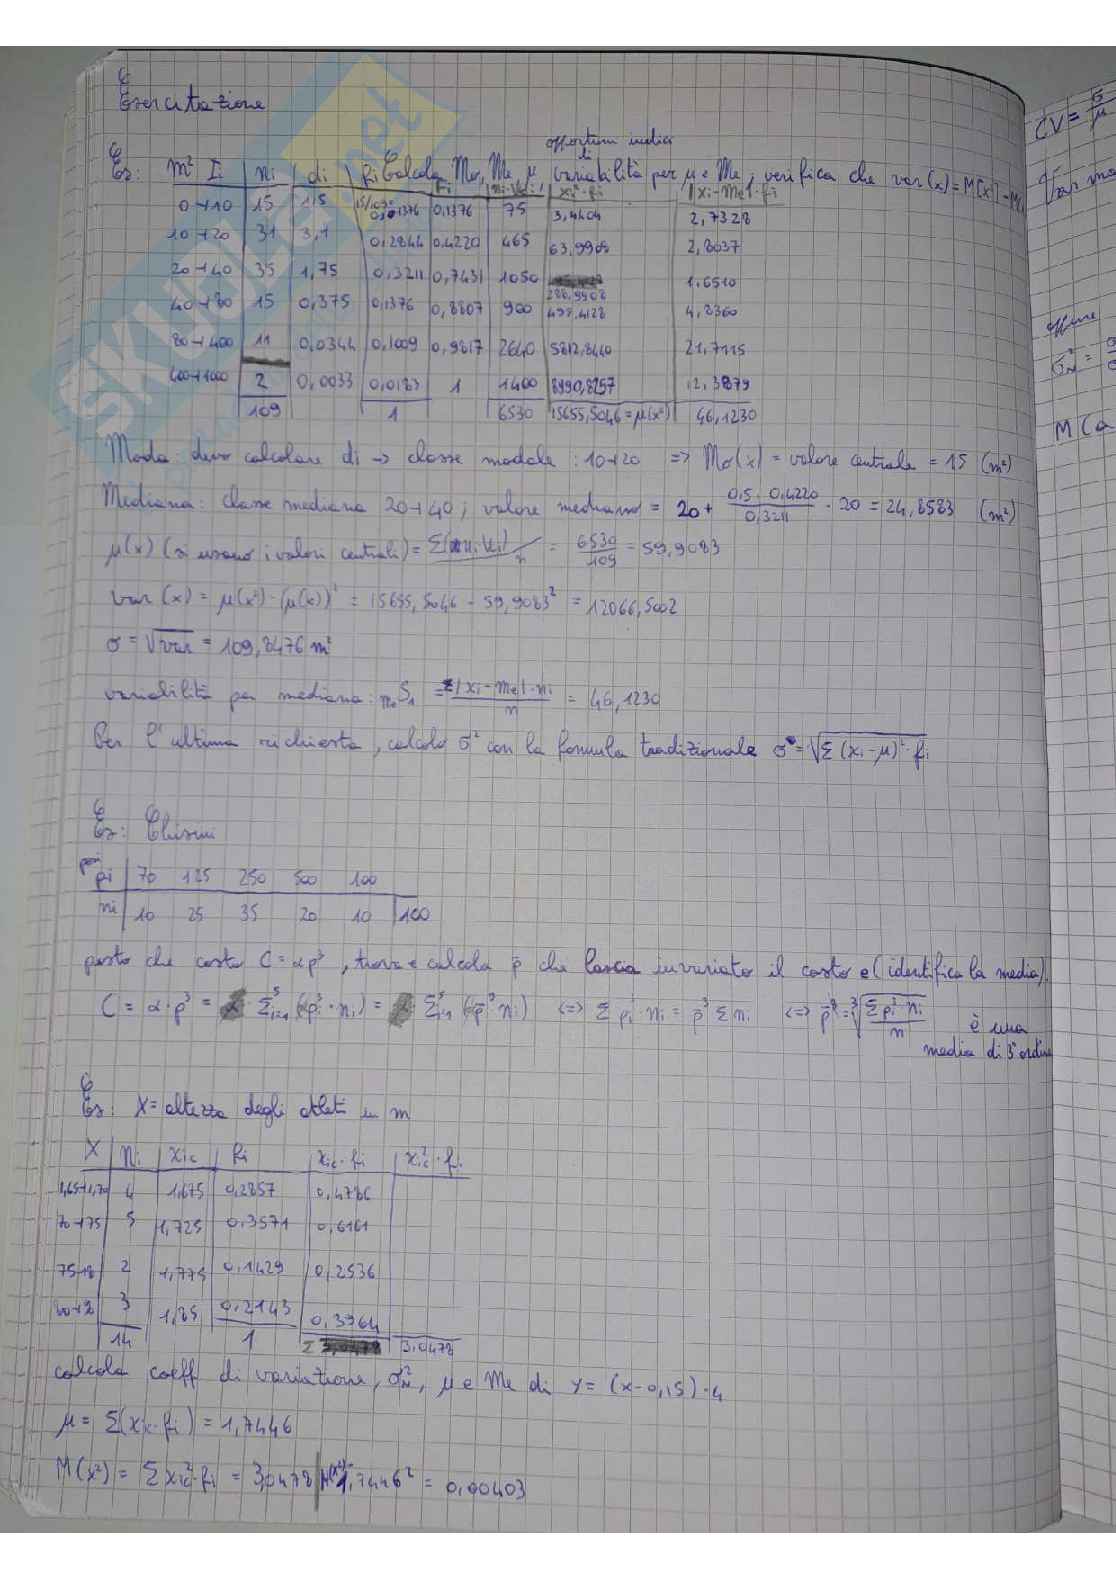 Esercitazione
Es: Calcola Mo, Me, μ opportuni indici di variabilità per μ e Me, verifica che var(x)=M[x²]-
m² Ii | ni | di | fi | Fi | ni·Vci | xi²·fi | |xi-Me|·fi
0⊣10 | 15 | 1,5 | 15/109= 0,1376 | 0,1376 | 75 | 3,4404 | 2,7328
10⊣20 | 31 | 3,1 | 0,2844 | 0,4220 | 465 | 63,9908 | 2,8037
20⊣40 | 35 | 1,75 | 0,3211 | 0,7431 | 1050 | 288,9908 | 1,6510
40⊣80 | 15 | 0,375 | 0,1376 | 0,8807 | 900 | 495,4128 | 4,8360
80⊣400 | 11 | 0,0344 | 0,1009 | 0,9817 | 2640 | 5812,8440 | 21,7115
400⊣1000 | 2 | 0,0033 | 0,0183 | 1 | 1400 | 8990,8257 | 12,3879
109 | 1 | 6530 | 15655,5046=μ(x²) | 46,1230
Moda: devo calcolare di → classe modale: 10⊣20 => Mo(x) = valore centrale = 15 (m²)
Mediana: classe mediana 20⊣40; valore mediano = 20 + (0,5-0,4220)/0,3211 · 20 = 24,8583 (m²)
μ(x) (si usano i valori centrali) = Σ(ni Vci)/n = 6530/109 = 59,9083
var(x) = μ(x²)-(μ(x))² = 15655,5046 - 59,9083² = 12066,5002
σ = √var = 109,8476 m²
variabilità per mediana: S₁ = Σ|xi-Me|·ni/n = 46,1230
Per l'ultima richiesta, calcolo σ² con la formula tradizionale σ=√Σ(xi-μ)²·fi
Es: Chisini
pi | 70 125 250 500 100
ni | 10 25 35 20 10 | 100
posto che costo C=αp³, trova e calcola p̄ che lascia invariato il costo e (identifica la media).
C = α·p³ = Σ⁵i=1 (pi³·ni) = Σ⁵i=1 (p̄³·ni) <=> Σ pi³·ni = p̄³ Σ ni <=> p̄ = ³√(Σ pi³·ni/n) è una
media di 3° ordine
Es: X= altezza degli atleti in m
X | ni | xic | fi | xic·fi | xic²·fi
1,65⊣1,70 | 4 | 1,675 | 0,2857 | 0,4786
70⊣75 | 5 | 1,725 | 0,3571 | 0,6161
75⊣8 | 2 | 1,775 | 0,1429 | 0,2536
80⊣9 | 3 | 1,85 | 0,2143 | 0,3964
14 | 1 | Σ | 3,0478
calcola coeff di variazione, σ²N, μ e Me di Y= (x-0,15)·4
μ= Σ(xic·fi) = 1,7446
M(x²) = Σ xic²·fi = 3,0478 | 1,7446² = 0,00403
CV= σ/μ
Var
oppure
σ²N =
M(a
SKUOLA.net